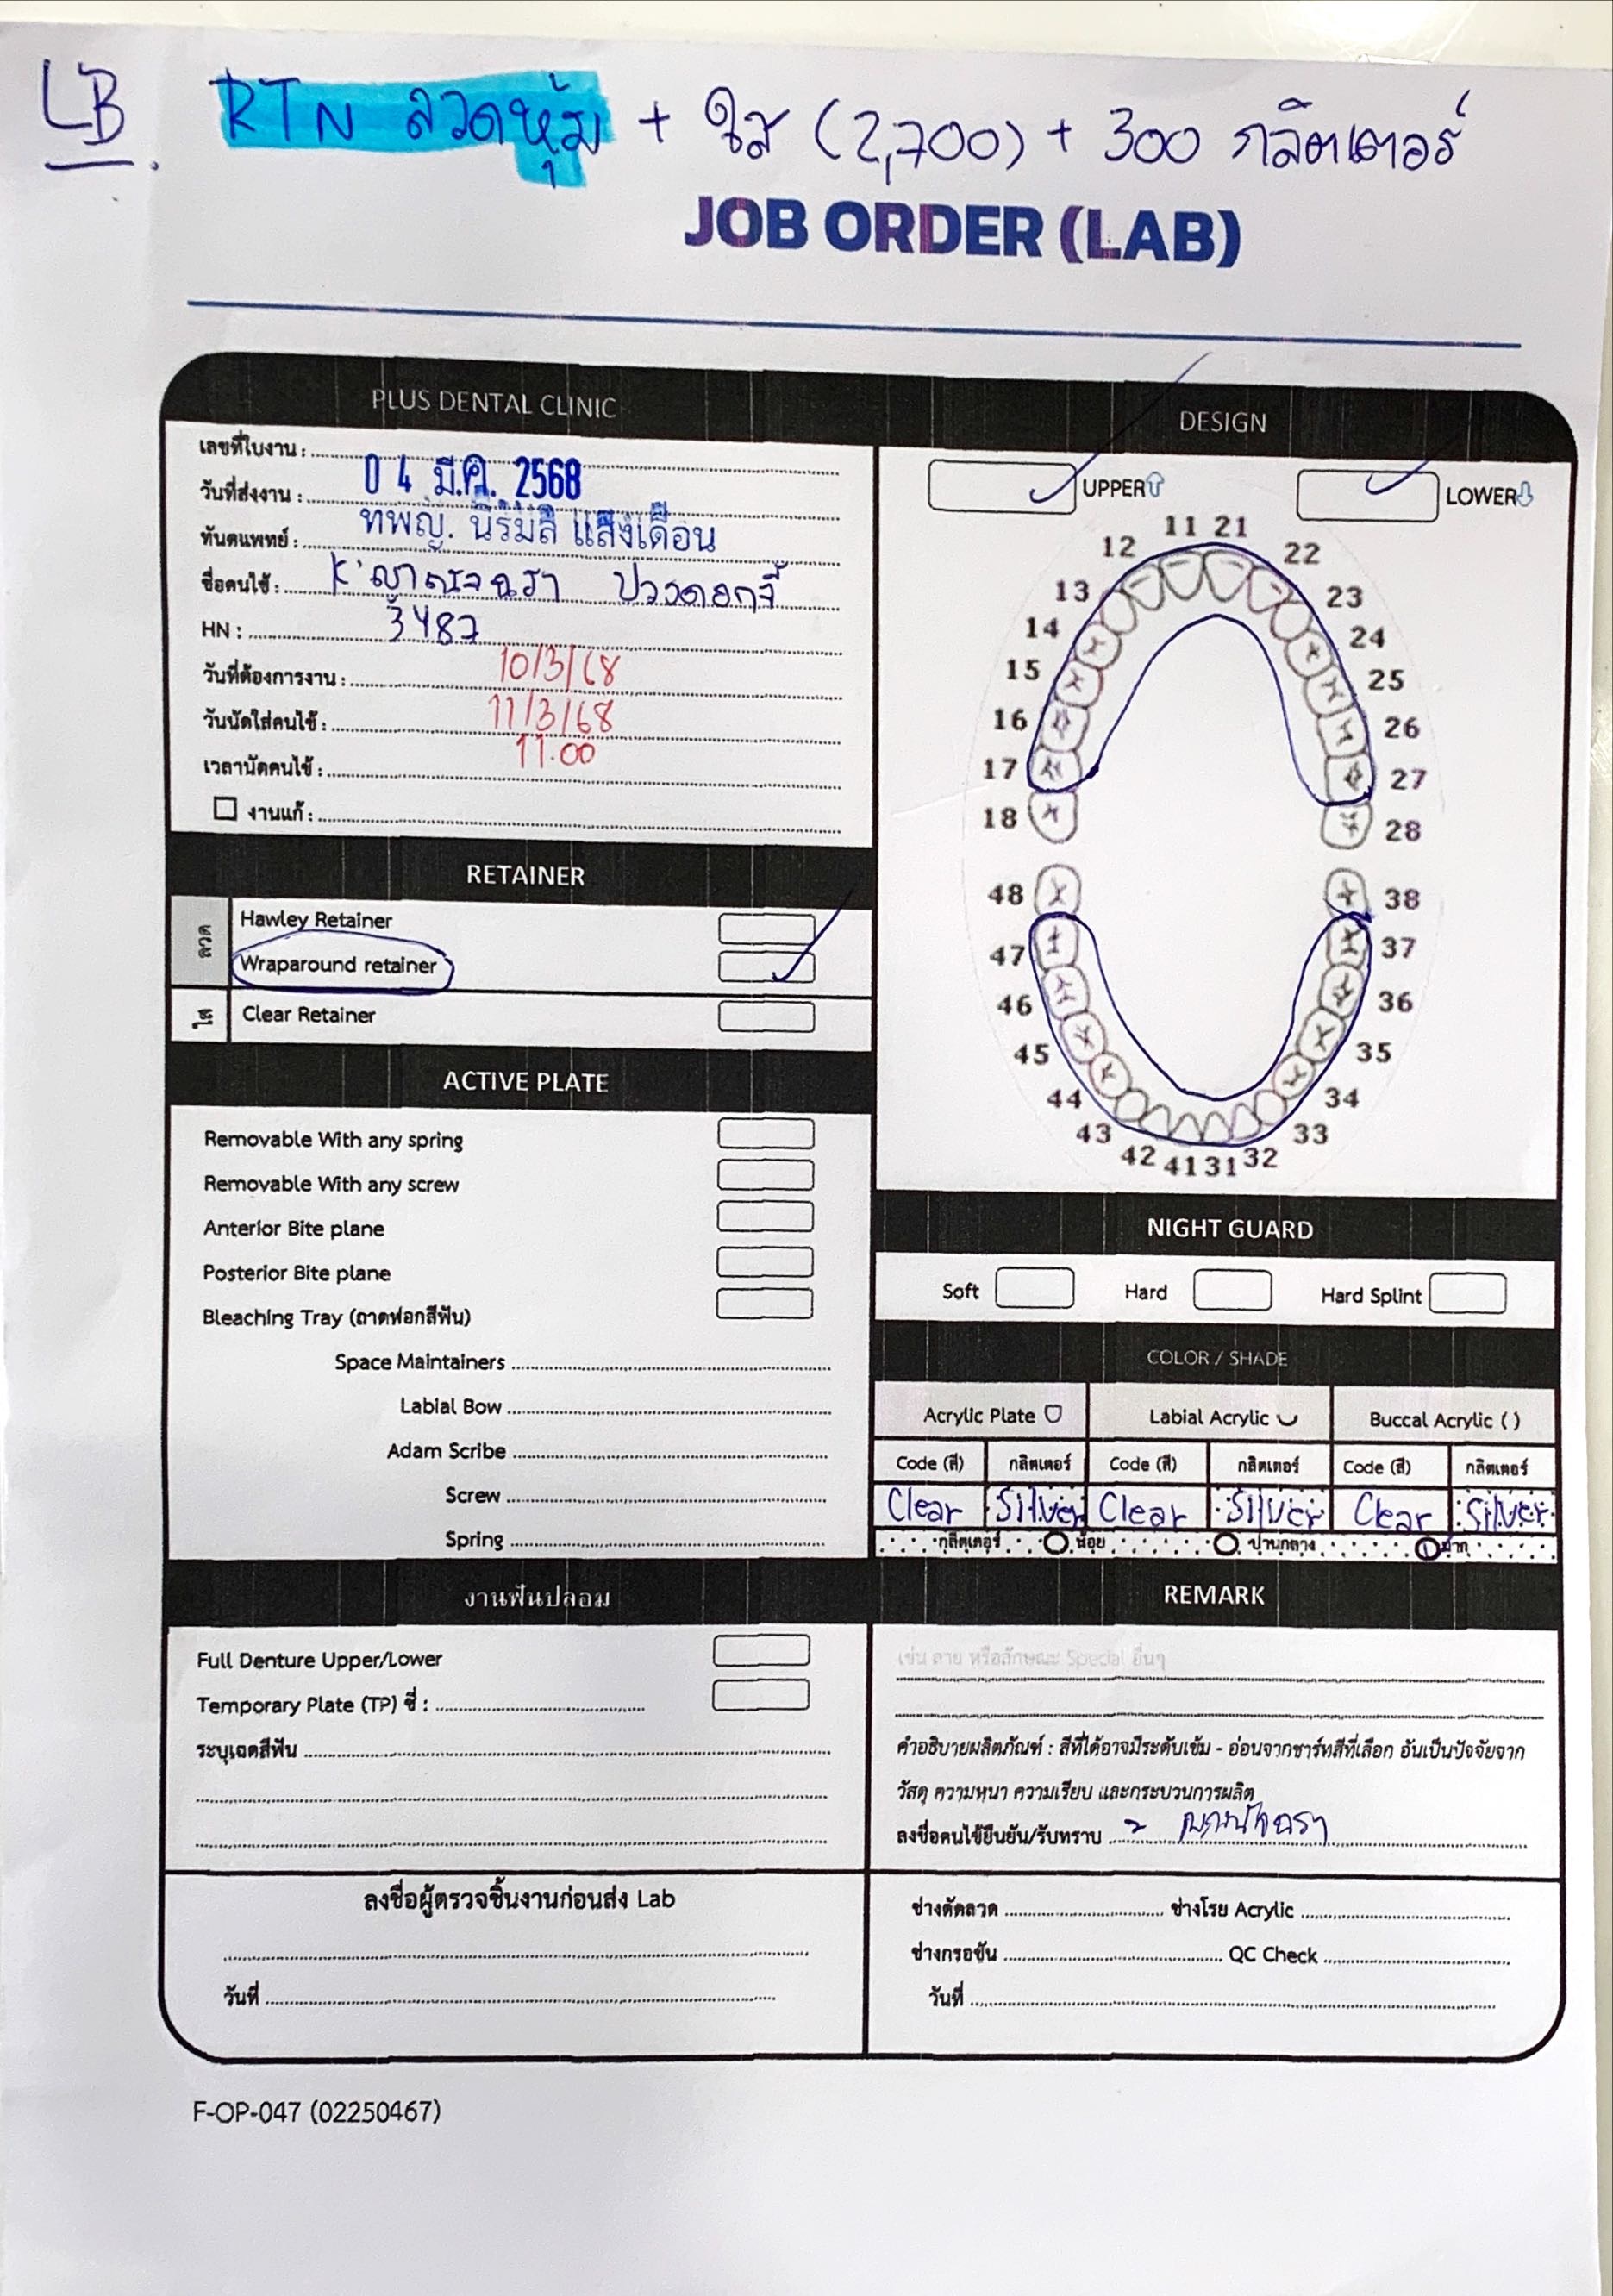 LB. RTN ลวดหุ้ม + ใส (2,700) + 300 กลิตเตอร์
JOB ORDER (LAB)
PLUS DENTAL CLINIC
เลขที่ใบงาน :
วันที่ส่งงาน : 04 มี.ค. 2568
ทันตแพทย์ : ทพญ. นิรมล แสงเดือน
ชื่อคนไข้ : K'
HN : 3487
วันที่ต้องการงาน : 10/3/68
วันนัดใส่คนไข้ : 11/3/68
เวลานัดคนไข้ : 11.00
งานแก้ :
RETAINER
ลวด
Hawley Retainer
Wraparound retainer
ใส
Clear Retainer
ACTIVE PLATE
Removable With any spring
Removable With any screw
Anterior Bite plane
Posterior Bite plane
Bleaching Tray (ถาดฟอกสีฟัน)
Space Maintainers
Labial Bow
Adam Scribe
Screw
Spring
งานฟันปลอม
Full Denture Upper/Lower
Temporary Plate (TP) ซี่ :
ระบุเฉดสีฟัน
ลงชื่อผู้ตรวจชิ้นงานก่อนส่ง Lab
วันที่
DESIGN
UPPER LOWER
11 21
12 22
13 23
14 24
15 25
16 26
17 27
18 28
48 38
47 37
46 36
45 35
44 34
43 33
42 41 31 32
NIGHT GUARD
Soft Hard Hard Splint
COLOR / SHADE
Acrylic Plate Labial Acrylic Buccal Acrylic ( )
Code (สี) กลิตเตอร์ Code (สี) กลิตเตอร์ Code (สี) กลิตเตอร์
Clear Silver Clear Silver Clear Silver
กลิตเตอร์ น้อย ปานกลาง มาก
REMARK
เช่น ลาย หรือลักษณะ Special อื่นๆ
คำอธิบายผลิตภัณฑ์ : สีที่ได้อาจมีระดับเข้ม - อ่อนจากชาร์ทสีที่เลือก อันเป็นปัจจัยจาก
วัสดุ ความหนา ความเรียบ และกระบวนการผลิต
ลงชื่อคนไข้ยืนยัน/รับทราบ
ช่างดัดลวด ช่างโรย Acrylic
ช่างกรอขัน QC Check
วันที่
F-OP-047 (02250467)